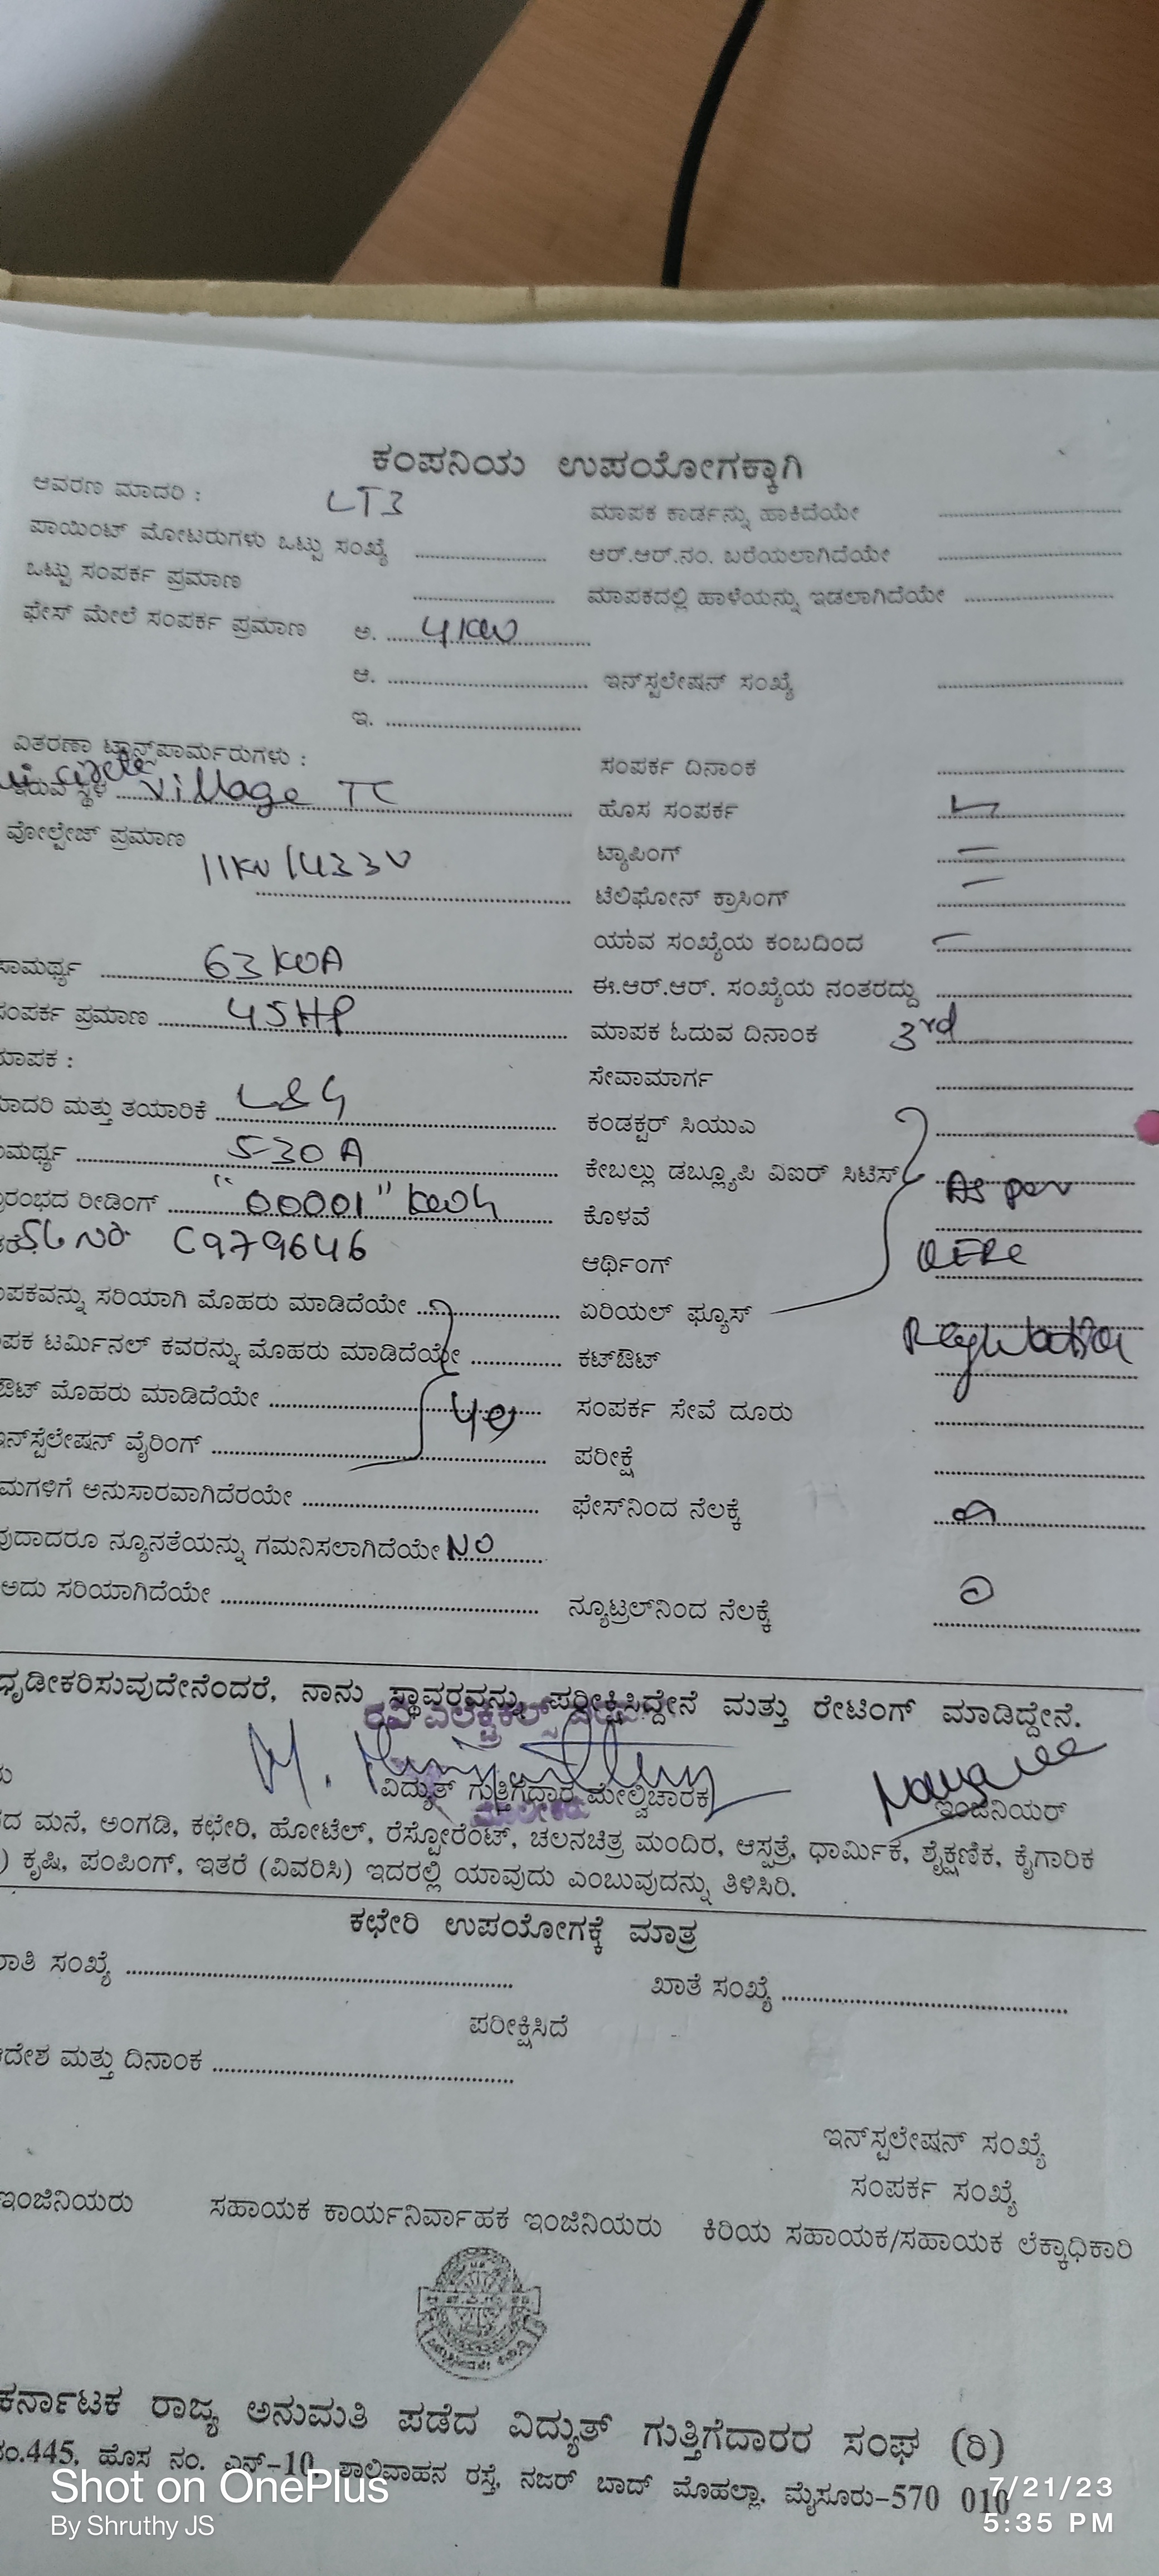 ಕಂಪನಿಯ ಉಪಯೋಗಕ್ಕಾಗಿ
ಆವರಣ ಮಾದರಿ : LT3
ಮಾಪಕ ಕಾರ್ಡನ್ನು ಹಾಕಿದೆಯೇ
ಪಾಯಿಂಟ್ ಮೋಟರುಗಳು ಒಟ್ಟು ಸಂಖ್ಯೆ
ಆರ್.ಆರ್.ನಂ. ಬರೆಯಲಾಗಿದೆಯೇ
ಒಟ್ಟು ಸಂಪರ್ಕ ಪ್ರಮಾಣ
ಮಾಪಕದಲ್ಲಿ ಹಾಳೆಯನ್ನು ಇಡಲಾಗಿದೆಯೇ
ಫೇಸ್ ಮೇಲೆ ಸಂಪರ್ಕ ಪ್ರಮಾಣ ಅ. 4KW
ಆ. ಇನ್‌ಸ್ಟಲೇಷನ್ ಸಂಖ್ಯೆ
ಇ.
ವಿತರಣಾ ಟ್ರಾನ್ಸ್‌ಪಾರ್ಮರುಗಳು :
ಸಂಪರ್ಕ ದಿನಾಂಕ
ಇರುವ ಸ್ಥಳ Village TC
ಹೊಸ ಸಂಪರ್ಕ
ವೋಲ್ಟೇಜ್ ಪ್ರಮಾಣ 11KV/433V
ಟ್ಯಾಪಿಂಗ್
ಟೆಲಿಫೋನ್ ಕ್ರಾಸಿಂಗ್
ಯಾವ ಸಂಖ್ಯೆಯ ಕಂಬದಿಂದ
ಸಾಮರ್ಥ್ಯ 63 KVA
ಈ.ಆರ್.ಆರ್. ಸಂಖ್ಯೆಯ ನಂತರದ್ದು
ಸಂಪರ್ಕ ಪ್ರಮಾಣ 45HP
ಮಾಪಕ ಓದುವ ದಿನಾಂಕ 3rd
ಮಾಪಕ :
ಸೇವಾಮಾರ್ಗ
ಮಾದರಿ ಮತ್ತು ತಯಾರಿಕೆ L&G
ಕಂಡಕ್ಟರ್ ಸಿಯುಎ
ಮರ್ಥ್ಯ 5-30 A
ಕೇಬಲ್ಲು ಡಬ್ಲ್ಯೂಪಿ ವಿಐರ್ ಸಿಟಿಸ್ As per
ರಂಭದ ರೀಡಿಂಗ್ "00001" KWh
ಕೊಳವೆ
Sl No C979646
ಆರ್ಥಿಂಗ್
ಪಕವನ್ನು ಸರಿಯಾಗಿ ಮೊಹರು ಮಾಡಿದೆಯೇ
ಏರಿಯಲ್ ಫ್ಯೂಸ್
ಪಕ ಟರ್ಮಿನಲ್ ಕವರನ್ನು ಮೊಹರು ಮಾಡಿದೆಯೇ
ಕಟ್‌ಔಟ್
ಔಟ್ ಮೊಹರು ಮಾಡಿದೆಯೇ
ಸಂಪರ್ಕ ಸೇವೆ ದೂರು
ಇನ್‌ಸ್ಟೆಲೇಷನ್ ವೈರಿಂಗ್
ಪರೀಕ್ಷೆ
ಮಗಳಿಗೆ ಅನುಸಾರವಾಗಿದೆರಯೇ
ಫೇಸ್‌ನಿಂದ ನೆಲಕ್ಕೆ
ವುದಾದರೂ ನ್ಯೂನತೆಯನ್ನು ಗಮನಿಸಲಾಗಿದೆಯೇ NO
ಅದು ಸರಿಯಾಗಿದೆಯೇ
ನ್ಯೂಟ್ರಲ್‌ನಿಂದ ನೆಲಕ್ಕೆ
ಧೃಡೀಕರಿಸುವುದೇನೆಂದರೆ, ನಾನು ಸ್ಥಾವರವನ್ನು ಪರೀಕ್ಷಿಸಿದ್ದೇನೆ ಮತ್ತು ರೇಟಿಂಗ್ ಮಾಡಿದ್ದೇನೆ.
ವಿದ್ಯುತ್ ಗುತ್ತಿಗೆದಾರ ಮೇಲ್ವಿಚಾರಕ
ಇಂಜಿನಿಯರ್
ದ ಮನೆ, ಅಂಗಡಿ, ಕಛೇರಿ, ಹೋಟೆಲ್, ರೆಸ್ಟೋರೆಂಟ್, ಚಲನಚಿತ್ರ ಮಂದಿರ, ಆಸ್ಪತ್ರೆ, ಧಾರ್ಮಿಕ, ಶೈಕ್ಷಣಿಕ, ಕೈಗಾರಿಕ
) ಕೃಷಿ, ಪಂಪಿಂಗ್, ಇತರೆ (ವಿವರಿಸಿ) ಇದರಲ್ಲಿ ಯಾವುದು ಎಂಬುವುದನ್ನು ತಿಳಿಸಿರಿ.
ಕಛೇರಿ ಉಪಯೋಗಕ್ಕೆ ಮಾತ್ರ
ಸಂಖ್ಯೆ
ಖಾತೆ ಸಂಖ್ಯೆ
ಪರೀಕ್ಷಿಸಿದೆ
ದೇಶ ಮತ್ತು ದಿನಾಂಕ
ಇನ್‌ಸ್ಟಲೇಷನ್ ಸಂಖ್ಯೆ
ಸಂಪರ್ಕ ಸಂಖ್ಯೆ
ಇಂಜಿನಿಯರು ಸಹಾಯಕ ಕಾರ್ಯನಿರ್ವಾಹಕ ಇಂಜಿನಿಯರು ಕಿರಿಯ ಸಹಾಯಕ/ಸಹಾಯಕ ಲೆಕ್ಕಾಧಿಕಾರಿ
ಕರ್ನಾಟಕ ರಾಜ್ಯ ಅನುಮತಿ ಪಡೆದ ವಿದ್ಯುತ್ ಗುತ್ತಿಗೆದಾರರ ಸಂಘ (ರಿ)
ನಂ.445, ಹೊಸ ನಂ. ಎನ್-10, ಶಾಲಿವಾಹನ ರಸ್ತೆ, ನಜರ್ ಬಾದ್ ಮೊಹಲ್ಲಾ, ಮೈಸೂರು-570 010
Shot on OnePlus
By Shruthy JS
7/21/23
5:35 PM